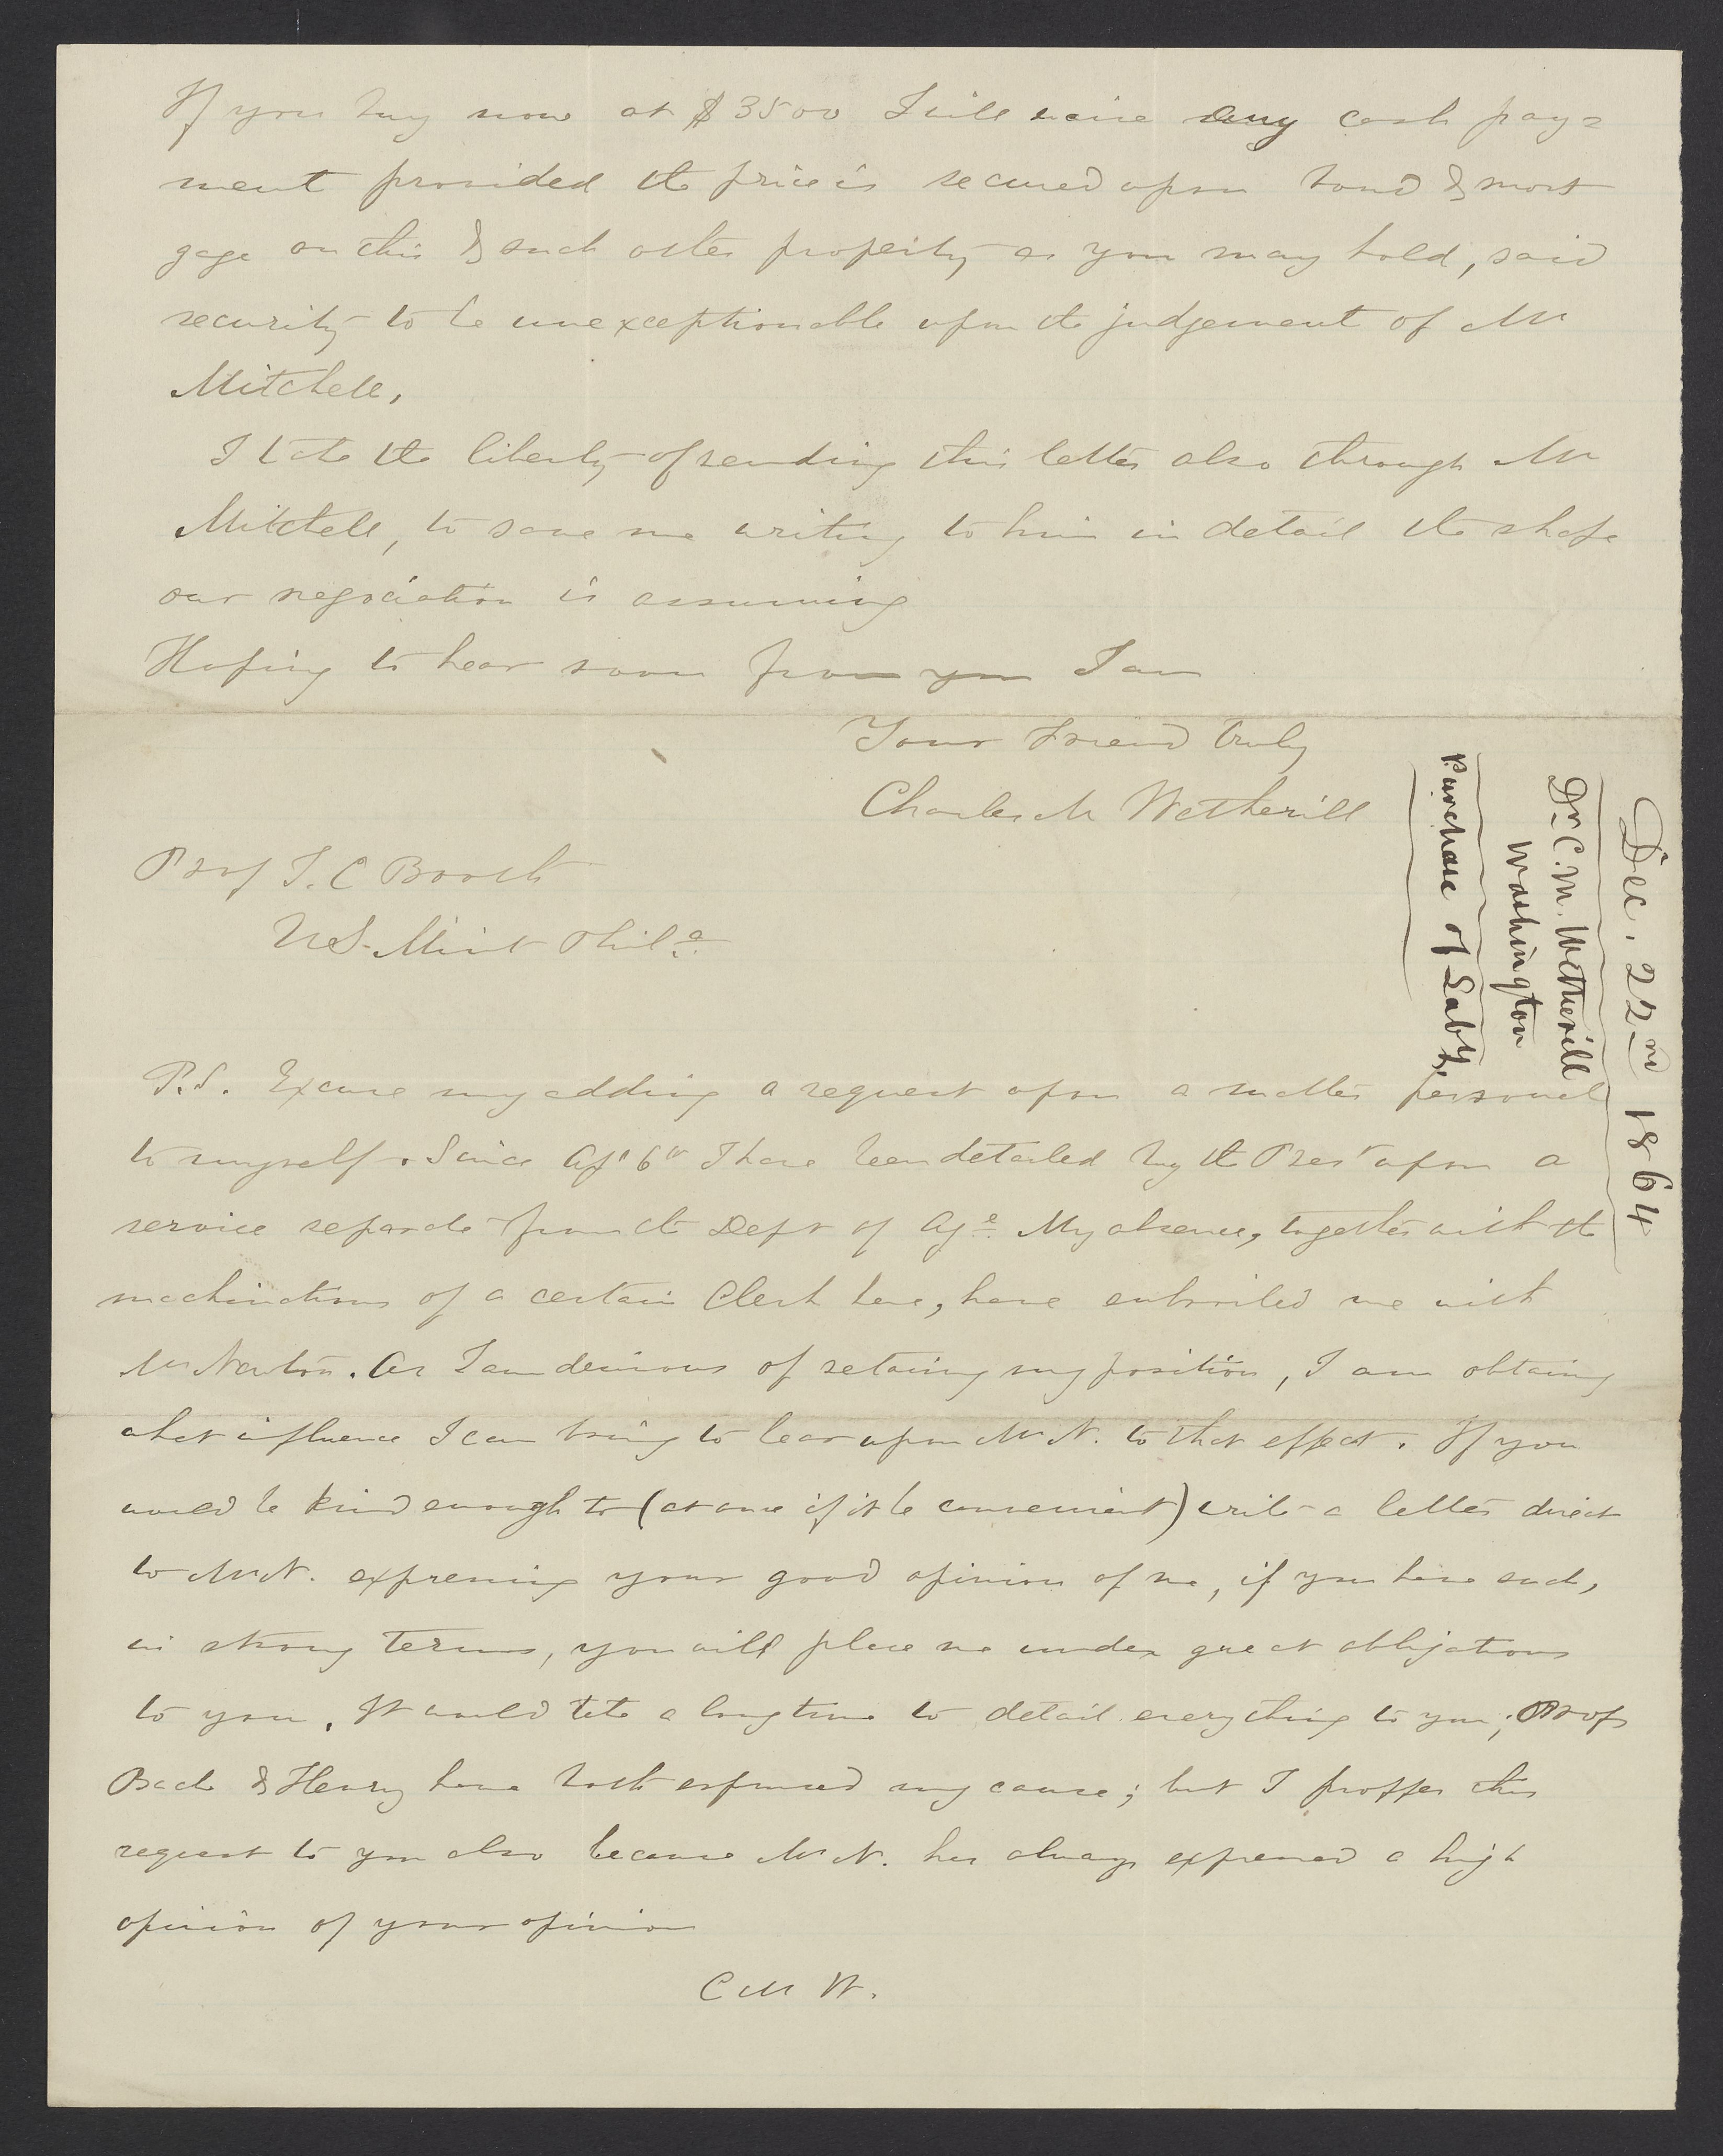 If you buy now at $3500 I will waive any cash pay=
ment provided the price is secured upon bond & mort
gage on this & such other property as you may hold, said
security to be unexceptionable upon the judgement of Mr
Mitchell,
I take the liberty of sending this letter also through Mr
Mitchell, to save me writing to him in detail the shape
our negociation is assuming
Hoping to hear soon from you I am
Your friend truly
Charles M Wetherill
Prof J. C Booth
US. Mint Phila.
Dec. 22nd 1864
Dr. C. M. Wetherill
Washington
Purchase of Laby.
P.S. Excuse my adding a request upon a matter personal
to myself. Since Apl 6th I have been detailed by the Prest upon a
service separate from the Dept of Age. My absence, together with the
machinations of a certain Clerk here, have embroiled me with
Mr Newton. As I am desirous of retaining my position, I am obtaing
what influence I can bring to bear upon Mr N. to that effect. If you
would be kind enough to (at once if it be convenient) write a letter direct
to Mr N. expressing your good opinion of me, if you have such,
in strong terms, you will place me under great obligations
to you. It would take a long time to detail everything to you; Profs
Bache & Henry have both espoused my cause; but I proffer this
request to you also because Mr N. has always expressed a high
opinion of your opinion
C M W.